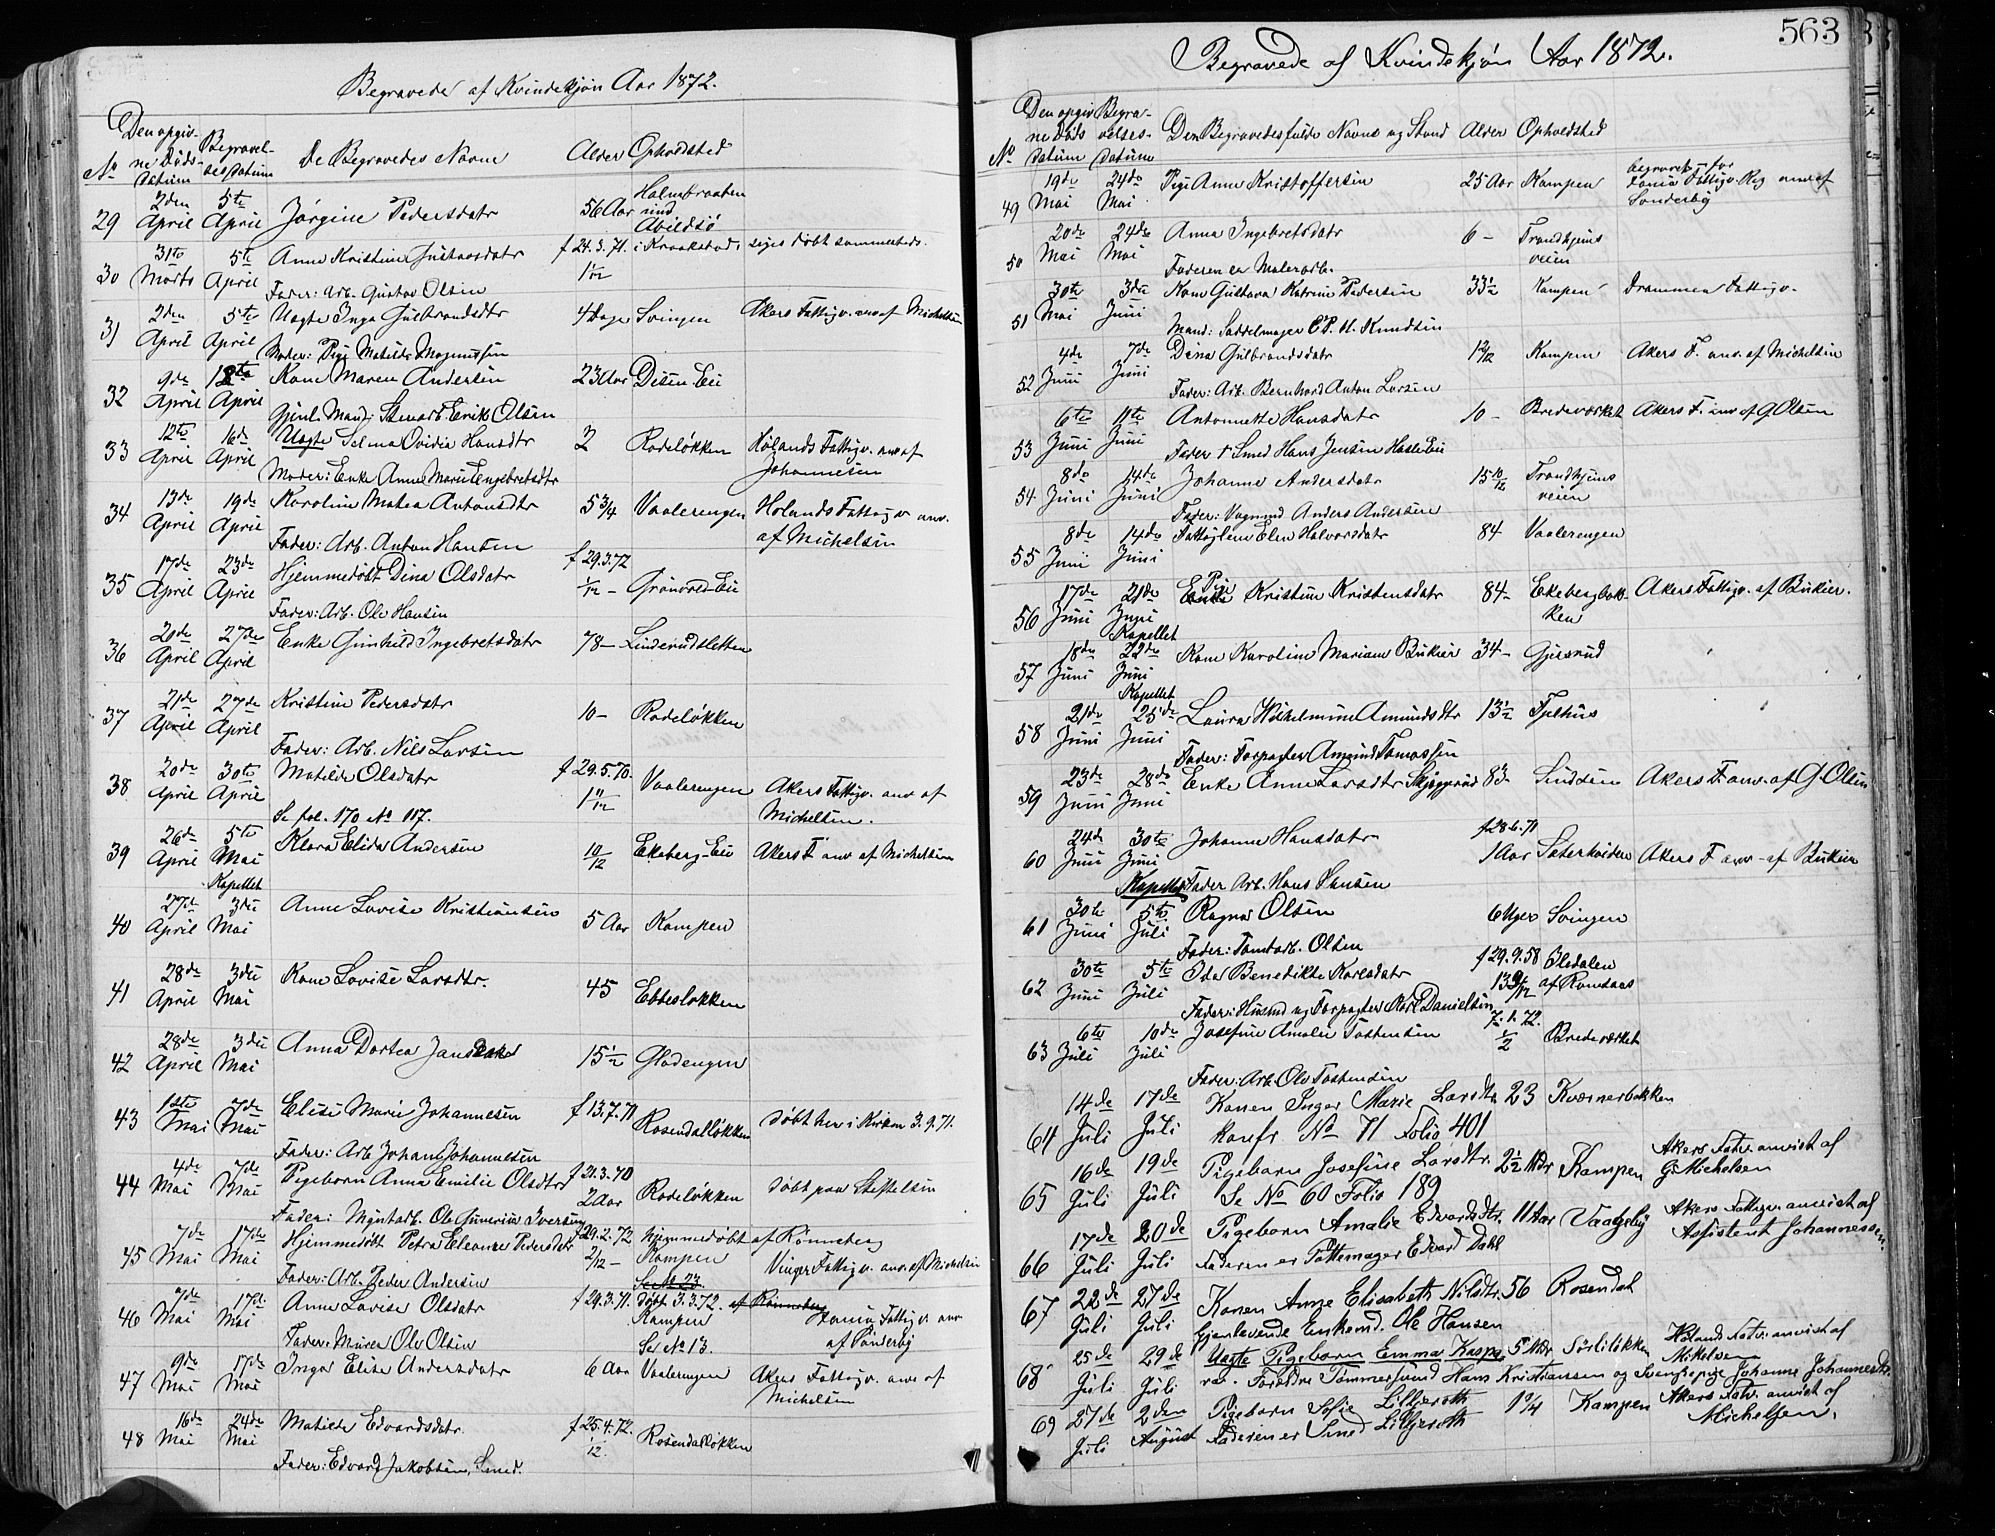 Begravede af Kvindekjøn Aar 1872.
No
Den opgivne Dødsdatum
Begravelsesdatum
De Begravedes Navne
Alder
Opholdsted
29 2den April 5te April Jørgine Pedersdatr 56 Aar
30 31te Marts 5te April Anne Kristine Gustavsdatr f 24.3.71. i Kraakstad, siges døbt sammesteds.
Fader: Arb. Gustav Olsen 1 1/12
31 2den April 5te April Uægte Inga Gulbrandsdtr 4 Dage Svingen Akers Fattigv. anv af Michelsen
Moder: Pige Matilde Magnussen
32 9de April 18te April Kone Maren Andersen 23 Aar Disen Eie
Gjenl. Mand: Stenarb. Erik Olsen
33 12te April 16de April Uægte Selma Ovidia Hansdtr 2 Rodeløkken Hølands Fattigv. anv af
Moder: Enke Anne Marie Engebretsdtr Johannesen
34 13de April 19de April Karoline Matea Antonsdtr 5 3/4 Vaalerengen Hølands Fattigv anv.
Fader: Arb. Anton Hansen af Michelsen
35 17de April 23de April Hjemmedøbt Dina Olsdatr f 29.3.72 1/12 – Grønvold Eie
Fader: Arb. Ole Hansen
36 20de April 27de April Enke Gunhild Ingebretsdatr 78 – Linderudsletten
37 21de April 27de April Kristine Pedersdatr 10 – Rodeløkken
Fader: Arb. Nils Larsen
38 20de April 30te April Matilde Olsdatr f 29.5.70. 1 11/12 Vaalerengen Akers Fattigv. anv af
Se fol. 170 No 117. Michelsen.
39 26de April 5te Mai Klara Elida Andersen 10/12 Ekeberg-Eie Akers F anv af Michelsen
Kapellet
40 27de April 3die Mai Anne Lovise Kristiansen 5 Aar Kampen
41 28de April 3die Mai Kone Lovise Larsdtr. 45 Ebbesløkken
42 28de April 3die Mai Anna Dortea 15 1/2 Gladengen
43 1ste Mai 7de Mai Elise Marie Johannesen f 13.7.71 Rosendalløkken døbt her i Kirken 3.9.71.
Fader: Arb Johan Johannesen
44 4de Mai 7de Mai Pigebarn Anna Emilie Olsdtr f 21.3.70 2 Aar Rodeløkken døbt paa Stiftelsen
Fader: Ole Iversen
45 7de Mai 17de Mai Hjemmedøbt Petra Eleonore Pedersdatr f 29.2.72 hjemmedøbt af Rønneberg
2/12 – Kampen Vinger Fattigv. anv. af Michelsen
Fader: Arb. Peder Andersen
46 7de Mai 17de Mai Anne Lovise Olsdatr f 29.3.71. døbt 3.3.72. af Rønneberg
Kampen Fattigv anv
Fader: Murer Ole Olsen Se No 13. af Sønderby
47 9de Mai 17de Mai Inga Elise Andersdatr 6 Aar Vaalerengen Akers Fattigv. anv af
Michelsen
48 16de Mai 24de Mai Matilde Edvardsdatr f 25.4.72. 1/12 Rosendalløkken
Fader: Edvard Jakobsen, Smed.
563
Begravede af Kvindekjøn Aar 1872.
No
Den opgivne Døds datum
Begravelses datum
Den Begravedes fulde Navne og Stand
Alder
Opholdsted
49 19de Mai 24de Mai Pige Anne Kristoffersen 25 Aar Kampen begravet for
Fattigv. Reg anv af
Sønderby
50 20de Mai 24de Mai Anna Ingebretsdatr 6 – Trondhjemsveien
Faderen er Malerarb.
51 30te Mai 3die Juni Kone Gustava Katrine Pedersen 33 1/2 Kampen Drammen Fattigv.
Mand: Saddelmager C. P. H. Knudsen
52 4de Juni 7de Juni Dina Gulbrandsdatr Kampen Akers F. anv. af Michelsen
Fader: Arb. Bernhard Anton Larsen
53 6te Juni 11te Juni Antonette Hansdatr 10 – Bredeværket Akers F. anv af G Olsen
Fader † Smed Hans Jensen Hasle Eie
54 8de Juni 14de Juni Johanne Andersdatr 15 10/12 Trondhjemsveien
Fader: Vognmd Anders Andersen
55 8de Juni 14de Juni Fattiglem Elen Halvorsdatr 84 Vaalerengen
56 17de Juni 21de Juni Enke Pige Kristine Kristensdatr 84 – Ekebergbakken Akers Fattigv. af Bukier.
Kapellet
57 18de Juni 22de Juni Kone Karoline Mariane Bukier 34 – Gjersrud
Kapellet
58 21de Juni 25de Juni Laura Wilhelmine Amundsdtr 13 1/2 Tjelhus
Fader: Forpagter Amund Tomassen
59 23de Juni 28de Juni Enke Anne Larsdtr Skjeggerud 83 – Sindsen Akers F anv. af G. Olsen
60 24de Juni 30te Juni Johanne Hansdatr f 28.6.71 1 Aar Akers F anv – af Bukier
Kapellet Fader Arb. Hans Hansen
61 30te Juni 5te Juli Ragna Olsen 6 Uger Svingen
Fader: Tomtarb. Olsen
62 30te Juni 5te Juli Oda Benedikte Karlsdatr f 29.9.58 Øledalen
13 9/12 af Romsaas
Fader: Husmd og Forpagter Karl Danielsen
63 6te Juli 10de Juli Josefine Amalie Tostensen 7.1.72. 1/2 Bredeværket
Fader: Arb. Ole Tostensen
64 14de Juli 17de Juli Konen Inger Marie Larsdtr 23 Kværnerbakken
konfr No 71 Folio 401
65 16de Juli 19de Juli Pigebarn Josefine Larsdtr. 2 1/2 Mdr Kampen Akers Fatv. anvist af
Se No 60 Folio 189 G Michelsen
66 17de Juli 20de Juli Pigebarn Amalie Edvardsdtr. 11 Aar Vaalgeby Akers Fattigv. anvist af
Faderen er Pottemager Edvard Dahl Assistent Johannessen.
67 22de Juli 27de Juli Konen Anne Elisabeth Nilsdtr. 56 Rosendal
Gjenlevende Enkemd. Ole Hansen
68 25de Juli 29de Juli Uægte Pigebarn Emma Kaspara. 5 Mdr Sørliløkken Hølands Fatv. anvist af
Mikelsen
Forældre Tømmersvend Hans Kristiansen og Svenskepige Johanne Johannesdtr.
69 27de Juli 2den August Pigebarn Sofie Liljeroth 1 3/4 Kampen Akers Fatv. anvist af
Faderen er Smed Liljeroth Michelsen.